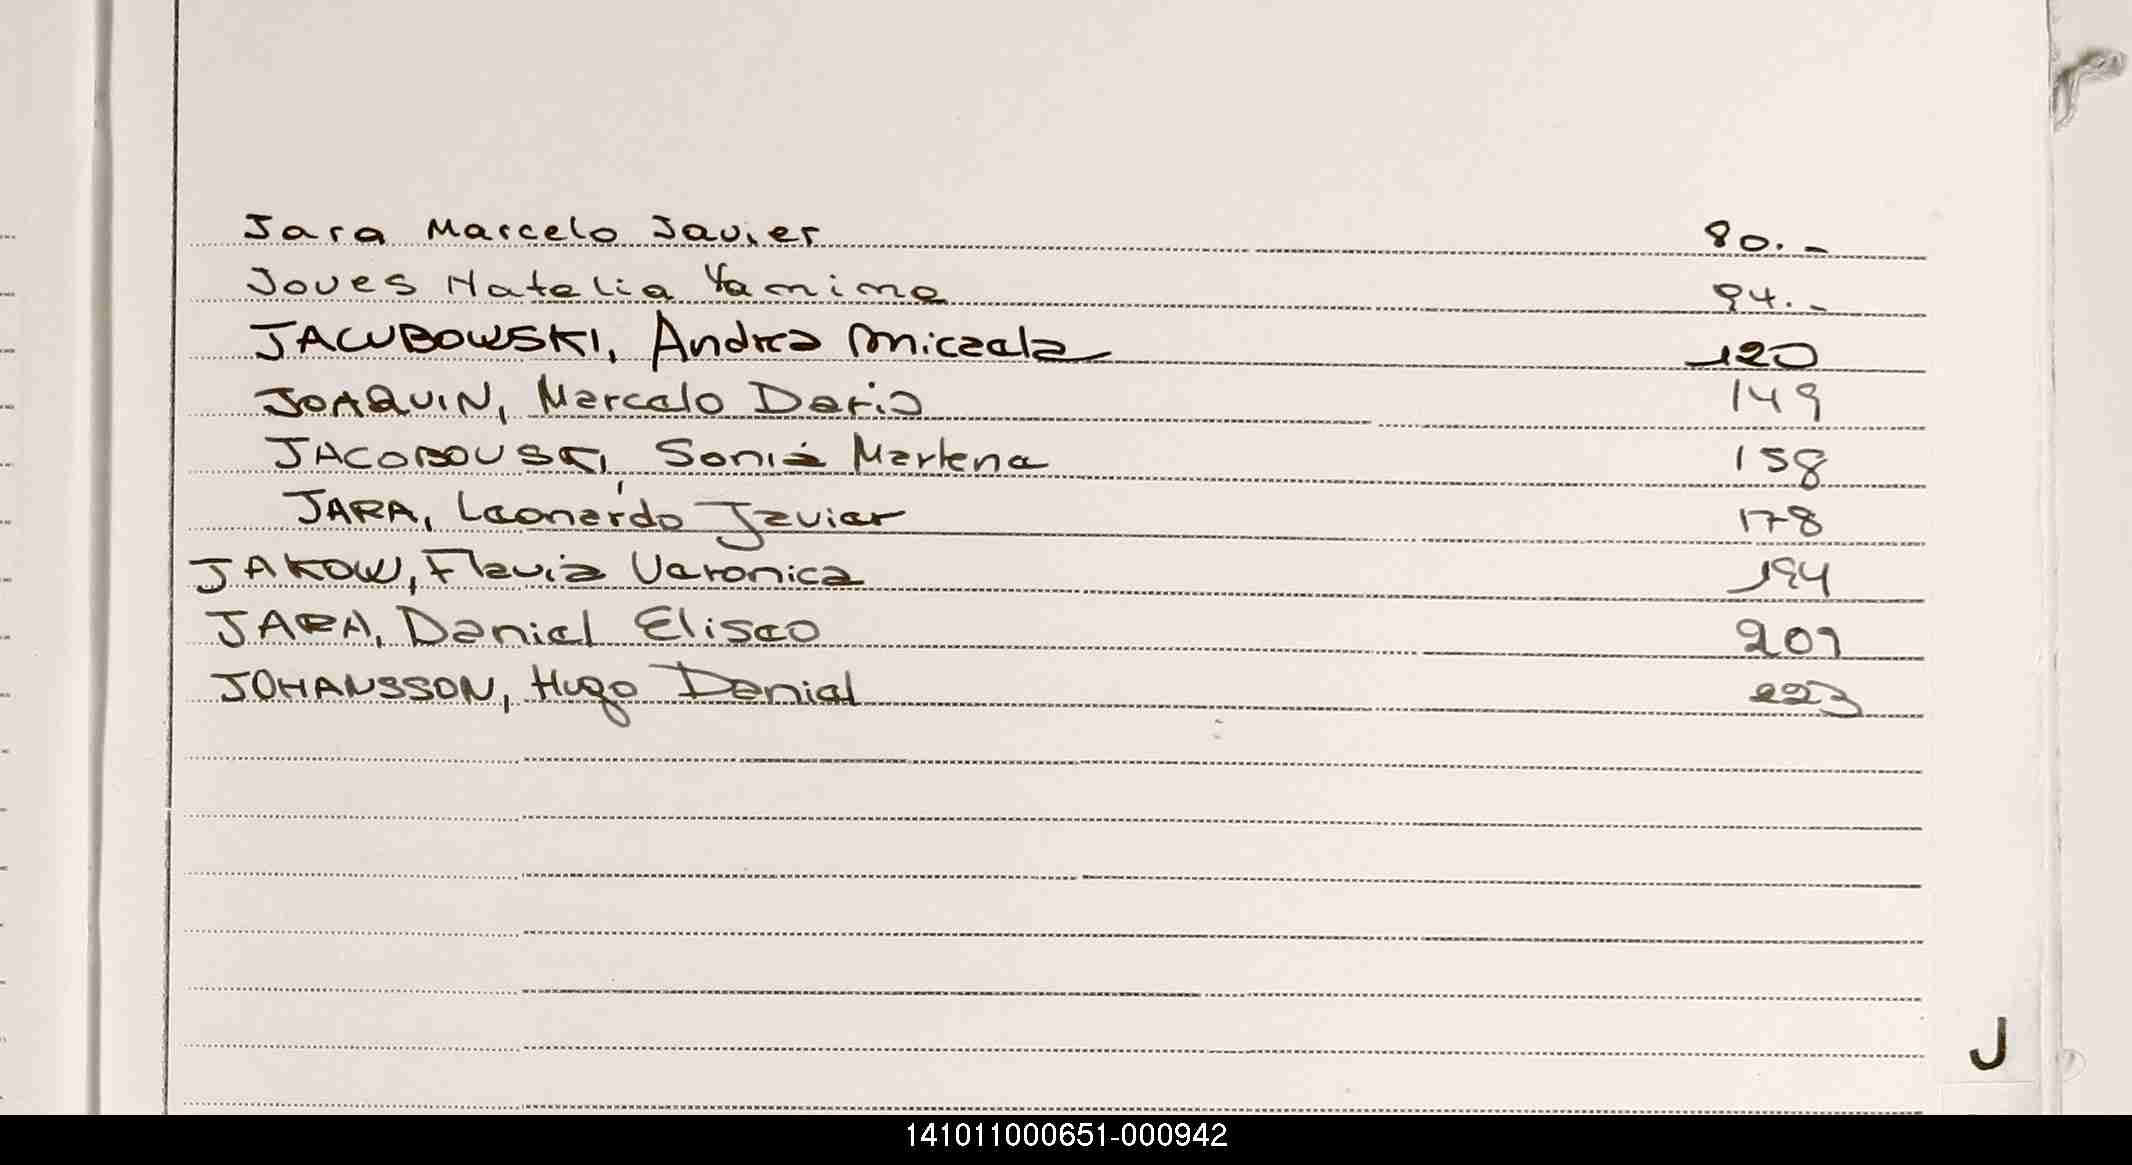 Jara Marcelo Javier 80.-
Joves Natalia Yamina 94.-
JACUBOWSKI, Andrea Micaela 120
JOAQUIN, Marcelo Dario 149
JACOBOUSKI, Sonia Marlena 158
JARA, Leonardo Javier 178
JAKOW, Flavia Veronica 194
JARA, Daniel Eliseo 201
JOHANSSON, Hugo Daniel 223
J
141011000651-000942